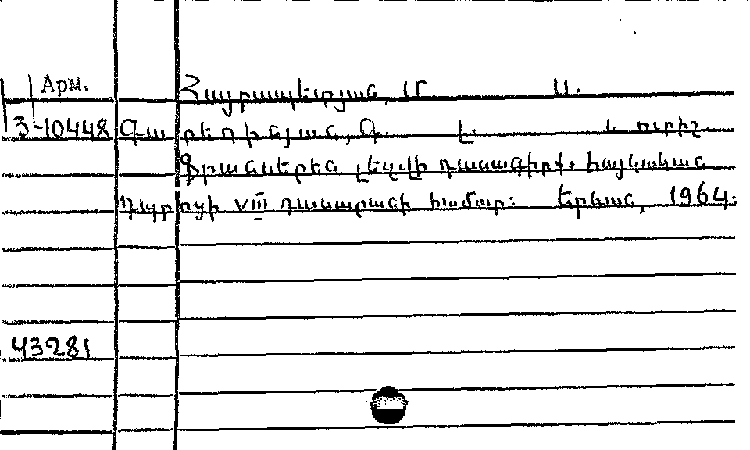 Арм. Հայրապետյան, Մ. Ա.
3-10448 Գաբրեդինյան, Գ. Լ. և ուրիշ.
Ֆրանսերեն լեզվի դասագիրք. հայկական
դպրոցի VIII դասարանի համար: Երևան, 1964.
43281